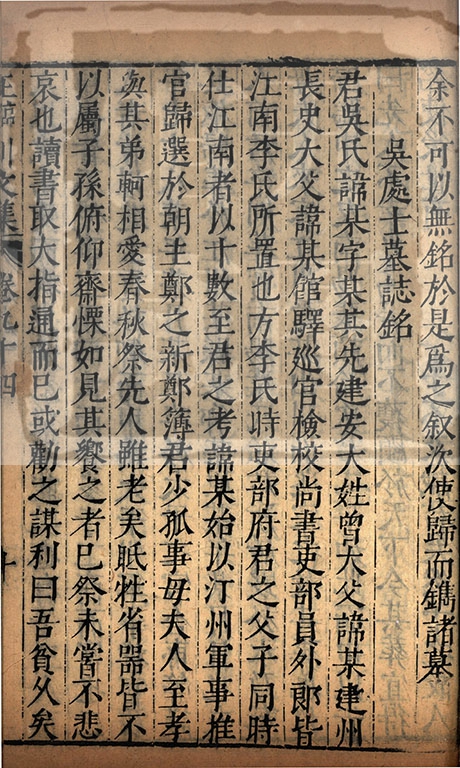 余不可以無銘於是爲之叙次使歸而鐫諸墓
吳處士墓誌銘
君吳氏諱某字某其先建安大姓曾大父諱某建州
長史大父諱某館驛巡官檢校尚書吏部員外郎皆
江南李氏所置也方李氏時吏部府君之父子同時
仕江南者以十數至君之考諱某始以汀州軍事推
官歸選於朝主鄭之新鄭簿君少孤事母夫人至孝
與其弟軻相愛春秋祭先人雖老矣眡牲省器皆不
以屬子孫俯仰齋慄如見其饗之者已祭未嘗不悲
哀也讀書取大指通而已或勸之謀利曰吾貧久矣
王臨川文集 卷九十四 十